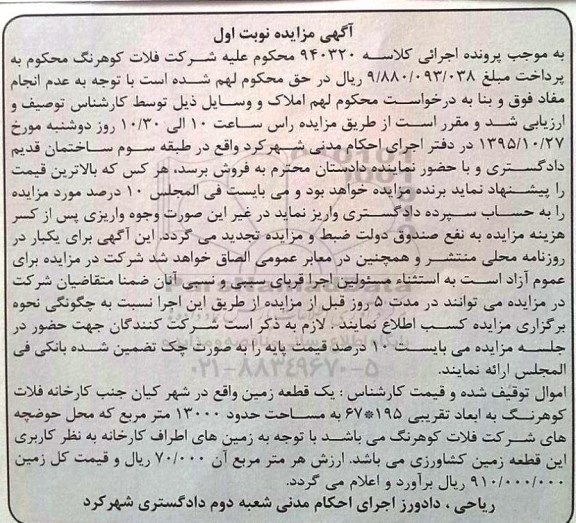 آگهی مزایده نوبت اول
به موجب پرونده اجرائی کلاسه ۹۴۰۳۲۰ محکوم علیه شرکت فلات کوهرنگ محکوم به
پرداخت مبلغ ۹/۸۸۰/۰۹۳/۰۳۸ ریال در حق محکوم لهم شده است با توجه به عدم انجام
مفاد فوق و بنا به درخواست محکوم لهم املاک و وسایل ذیل توسط کارشناس توصیف و
ارزیابی شد و مقرر است از طریق مزایده راس ساعت ۱۰ الی ۱۰/۳۰ روز دوشنبه مورخ
۱۳۹۵/۱۰/۲۷ در دفتر اجرای احکام مدنی شهرکرد واقع در طبقه سوم ساختمان قدیم
دادگستری و با حضور نماینده دادستان محترم به فروش برسد، هر کس که بالاترین قیمت
را پیشنهاد نماید برنده مزایده خواهد بود و می بایست فی المجلس ۱۰ درصد مورد مزایده
را به حساب سپرده دادگستری واریز نماید در غیر این صورت وجوه واریزی پس از کسر
هزینه مزایده به نفع صندوق دولت ضبط و مزایده تجدید می گردد. این آگهی برای یکبار در
روزنامه محلی منتشر و همچنین در معابر عمومی الصاق خواهد شد شرکت در مزایده برای
عموم آزاد است به استثناء مسئولین اجرا قربای سببی و نسبی آنان ضمنا متقاضیان شرکت
در مزایده می توانند در مدت ۵ روز قبل از مزایده از طریق این اجرا نسبت به چگونگی نحوه
برگزاری مزایده کسب اطلاع نمایند . لازم به ذکر است شرکت کنندگان جهت حضور در
جلسه مزایده می بایست ۱۰ درصد قیمت پایه را به صورت چک تضمین شده بانکی فی
المجلس ارائه نمایند.
اموال توقیف شده و قیمت کارشناس : یک قطعه زمین واقع در شهر کیان جنب کارخانه فلات
کوهرنگ به ابعاد تقریبی ۱۹۵*۶۷ به مساحت حدود ۱۳۰۰۰ متر مربع که محل حوضچه
های شرکت فلات کوهرنگ می باشد با توجه به زمین های اطراف کارخانه به نظر کاربری
این قطعه زمین کشاورزی می باشد. ارزش هر متر مربع آن ۷۰/۰۰۰ ریال و قیمت کل زمین
۹۱۰/۰۰۰/۰۰۰ ریال برآورد و اعلام می گردد.
ریاحی ، دادورز اجرای احکام مدنی شعبه دوم دادگستری شهرکرد
۰۲۱-۸۸۳۴۹۶۷۰-۵